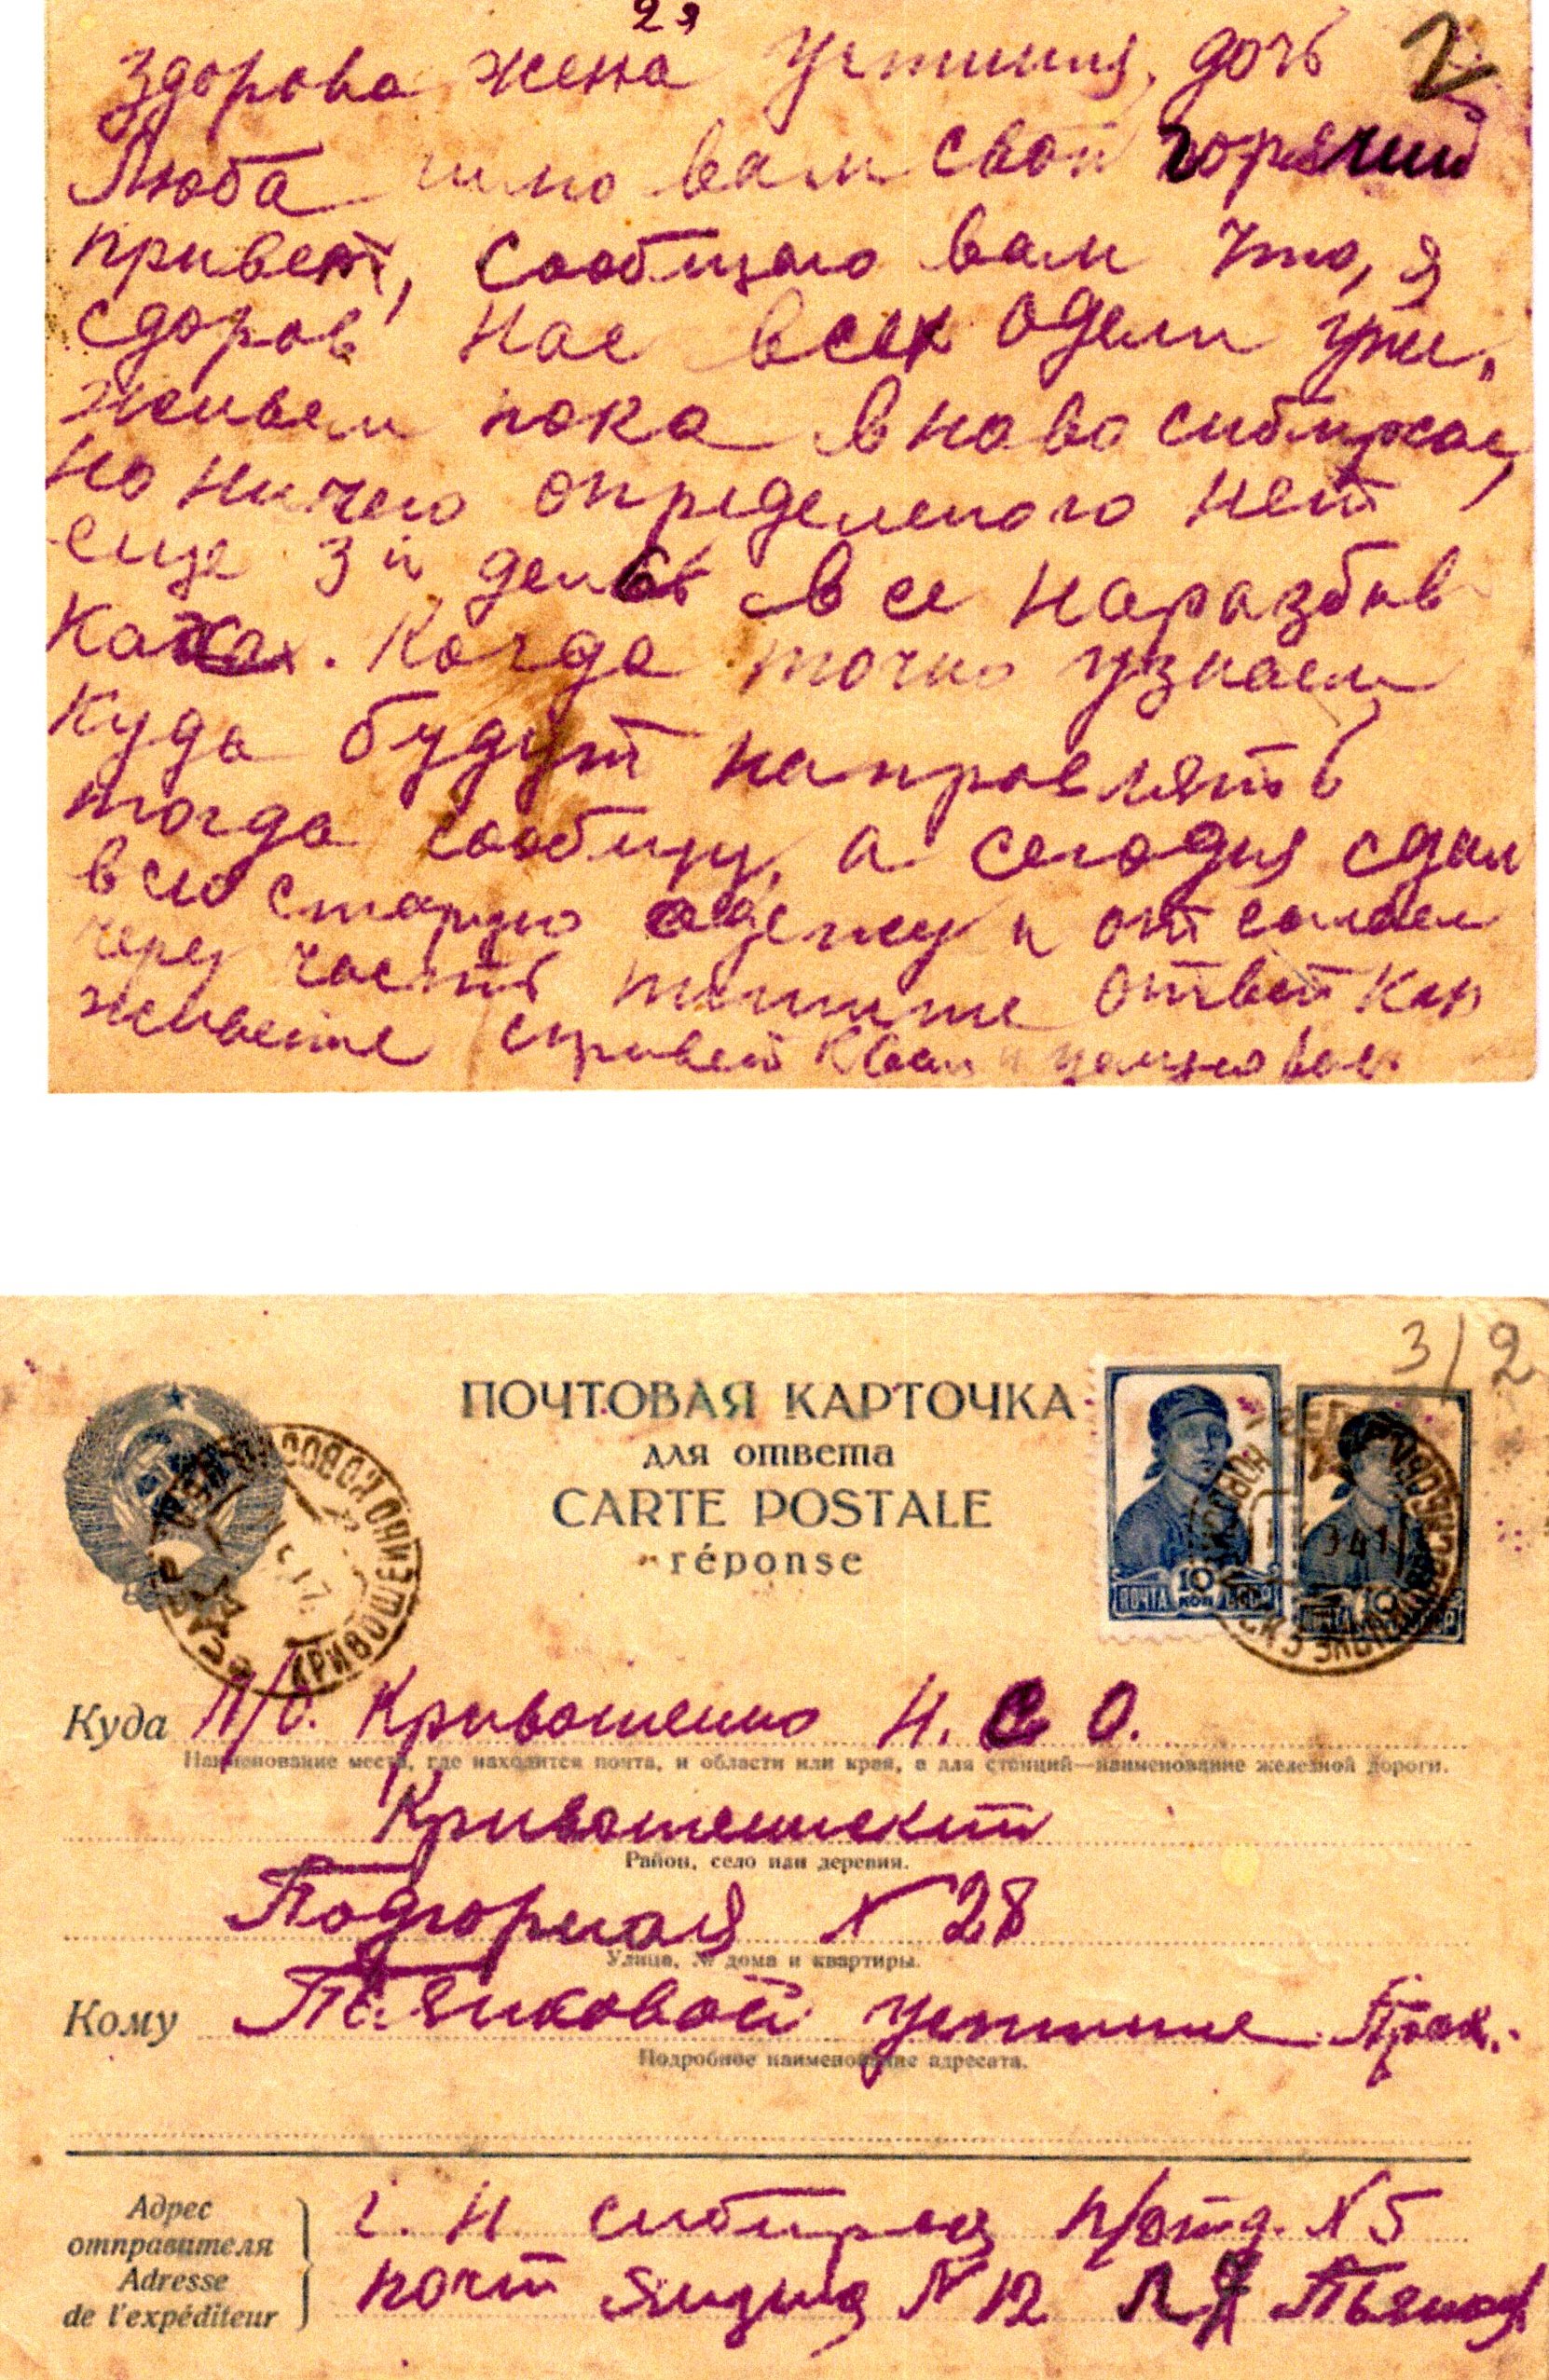 2я
2
Здорова жена Устиния, дочь
Люба шлю вам свой горячий
привет, сообщаю вам что, я
сдоров нас всех одели уже,
живем пока в ново сибирске,
но ничего определеного нет
еще 3й день все наразбив
ках. Когда точно узнаем
куда будут направлять
тогда сообщу, а сегодня сдал
всю старую одежу и
через часть пишите ответ как
живете привет к вам и целую вас
3/2
ПОЧТОВАЯ КАРТОЧКА
для ответа
CARTE POSTALE
réponse
ПОЧТА 10 КОП СССР
КРИВОШЕИНО НОВОСИБ
Куда П/О. Кривошеино Н. С О.
Наименование места, где находится почта, и области или края, а для станций—наименование железной дороги.
Кривошеинский
Район, село или деревня.
Подгорная N 28
Улица, № дома и квартиры.
Кому Пьянковой Устинье Прок.
Подробное наименование адресата.
Адрес отправителя
Adresse de l'expéditeur
г. Н. сибирск п/отд. N 5
почт ящик N 12 Пьянков